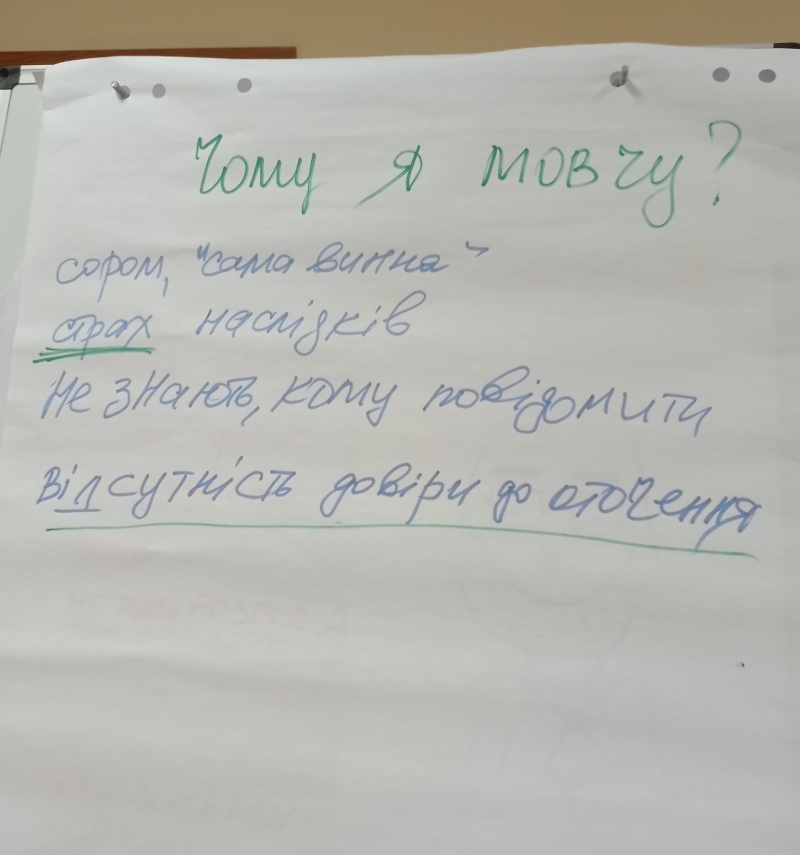 Чому я мовчу?
сором, "сама винна"
страх наслідків
Не знають, кому повідомити
Відсутність довіри до оточення